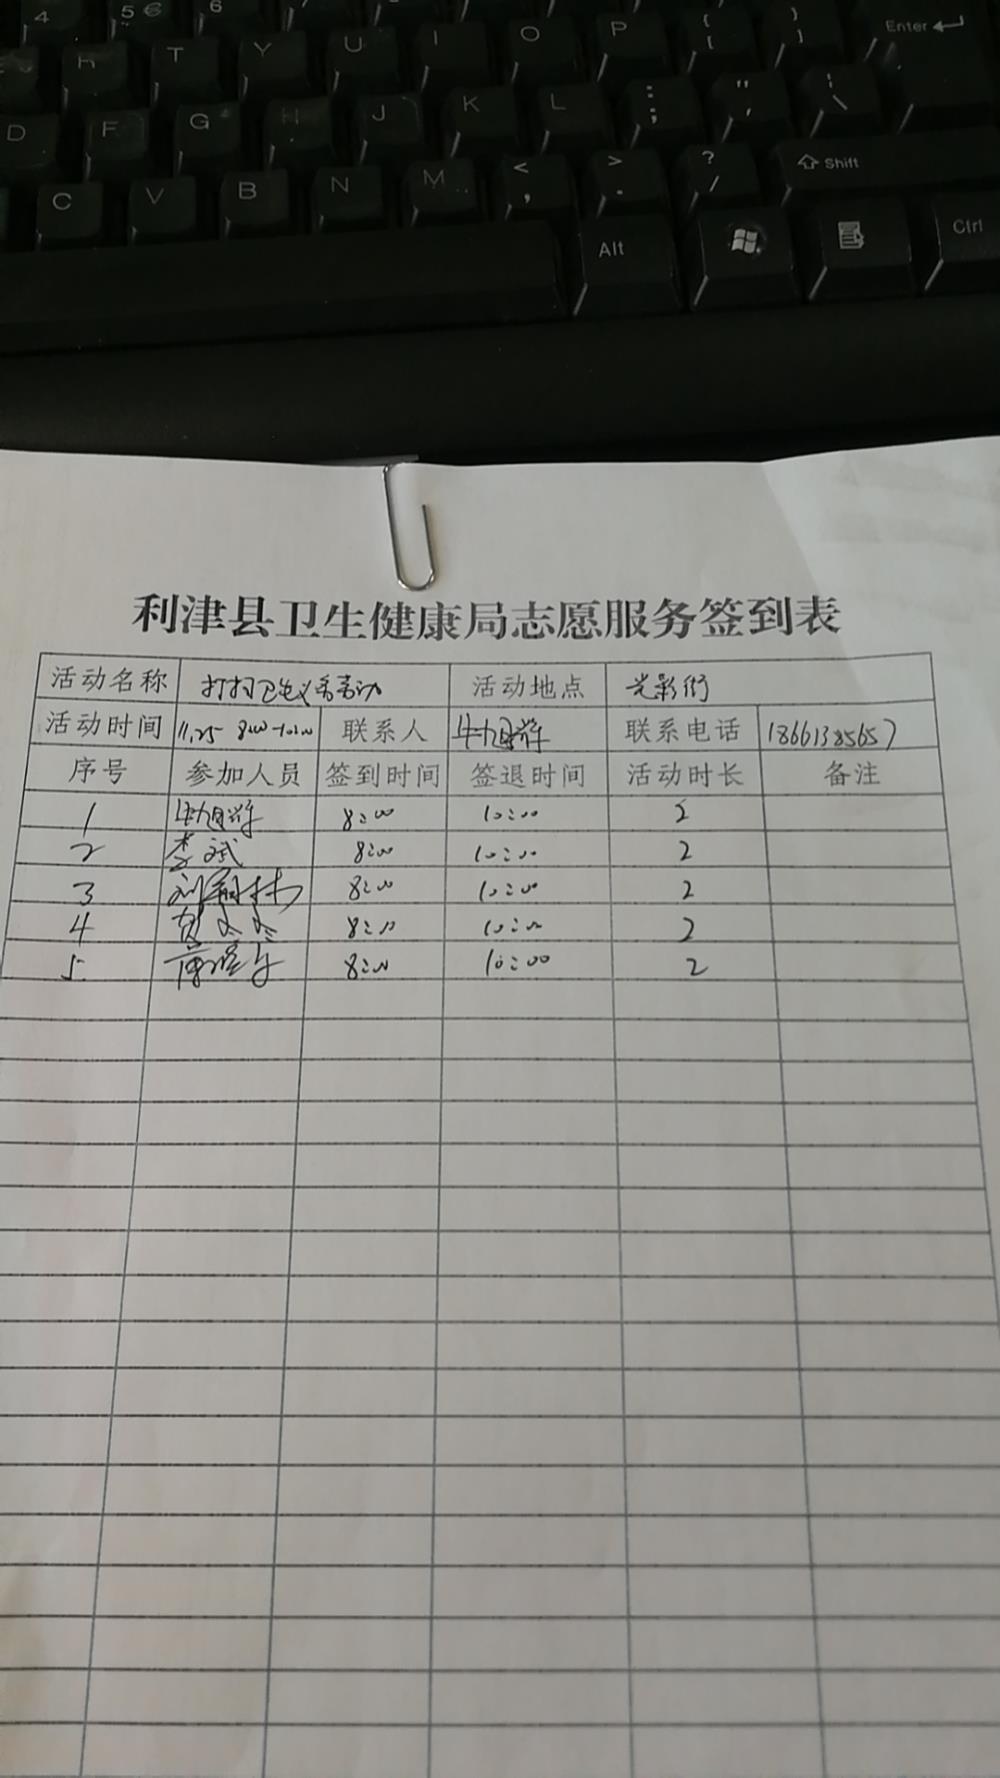 4 5 € 6
R T Y U I O P { [ } ] Enter
D F G H J K L : ; " ' | \
C V B N M < , > . ? / Shift
Alt Ctrl
利津县卫生健康局志愿服务签到表
活动名称 打扫卫生义务劳动 活动地点 光彩街
活动时间 11.25 8:00-10:00 联系人 牛旭辉 联系电话 18661385657
序号 参加人员 签到时间 签退时间 活动时长 备注
1 牛旭辉 8:00 10:00 2
2 李斌 8:00 10:00 2
3 8:00 10:00 2
4 贺冬冬 8:00 10:00 2
5 8:00 10:00 2